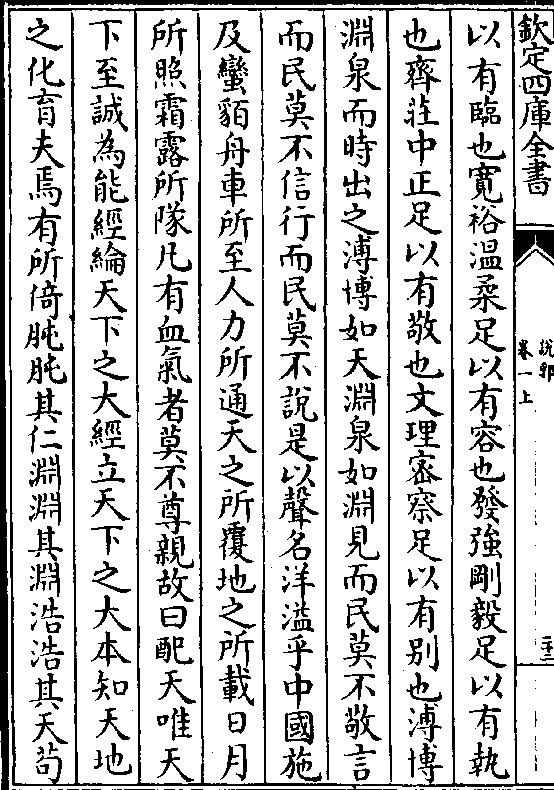 欽定四庫全書
説郛
卷一上
二十二
以有臨也寛裕温柔足以有容也發強剛毅足以有執
也齊莊中正足以有敬也文理宻察足以有别也溥博
淵泉而時出之溥博如天淵泉如淵見而民莫不敬言
而民莫不信行而民莫不說是以聲名洋溢乎中國施
及蠻貊舟車所至人力所通天之所覆地之所載日月
所照霜露所隊凡有血氣者莫不尊親故曰配天唯天
下至誠為能經綸天下之大經立天下之大本知天地
之化育夫焉有所倚肫肫其仁淵淵其淵浩浩其天茍